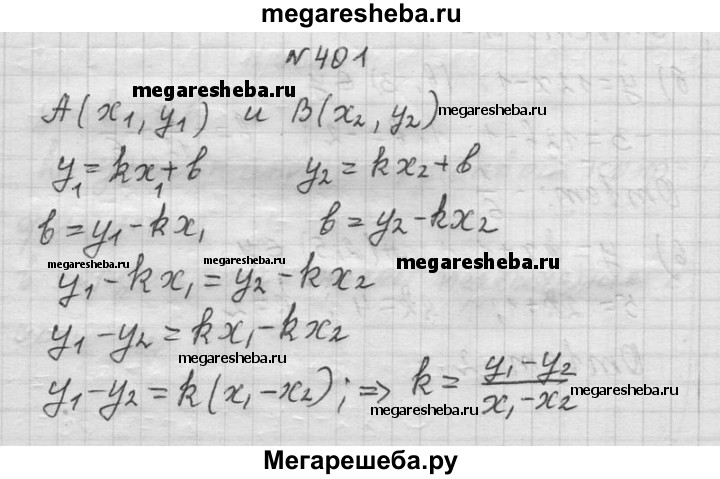 megaresheba.ru
№ 401
megaresheba.ru
A(x₁, y₁) и B(x₂, y₂)
megaresheba.ru
y₁ = kx₁ + в y₂ = kx₂ + в
в = y₁ - kx₁ в = y₂ - kx₂
megaresheba.ru megaresheba.ru
y₁ - kx₁ = y₂ - kx₂
y₁ - y₂ = kx₁ - kx₂
megaresheba.ru
y₁ - y₂ = k(x₁ - x₂); => k = y₁ - y₂ / x₁ - x₂
megaresheba.ru megaresheba.ru
Мегарешеба.ру